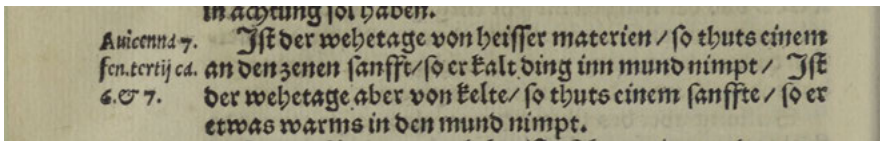 in achtung sol haben.
Auicenna 7. Ist der wehetage von heisser materien / so thuts einem
fen.tertij ca. an den zenen sanfft / so er kalt ding inn mund nimpt / Ist
6. & 7. der wehetage aber von kelte / so thuts einem sanffte / so er
etwas warms in den mund nimpt.